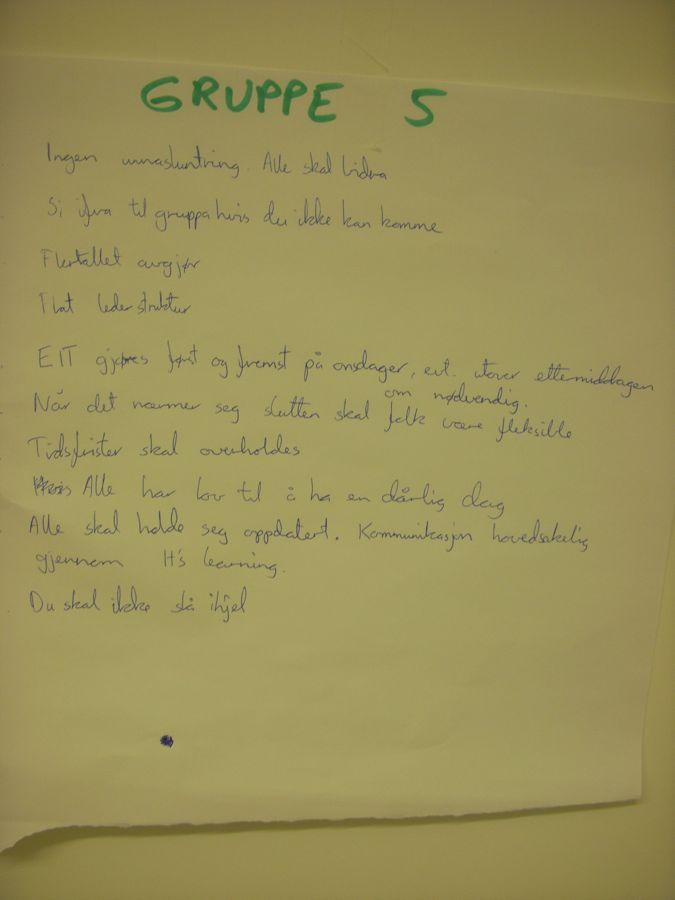 GRUPPE 5
Ingen unnasluntring. Alle skal bidra
Si ifra til gruppa hvis du ikke kan komme
Flertallet avgjør
Flat lederstruktur
EIT gjøres først og fremst på onsdager, evt. utover ettermiddagen
om nødvendig.
Når det nærmer seg slutten skal folk være fleksible
Tidsfrister skal overholdes
Alle har lov til å ha en dårlig dag
Alle skal holde seg oppdatert. Kommunikasjon hovedsakelig
gjennom It's learning.
Du skal ikke slå ihjel